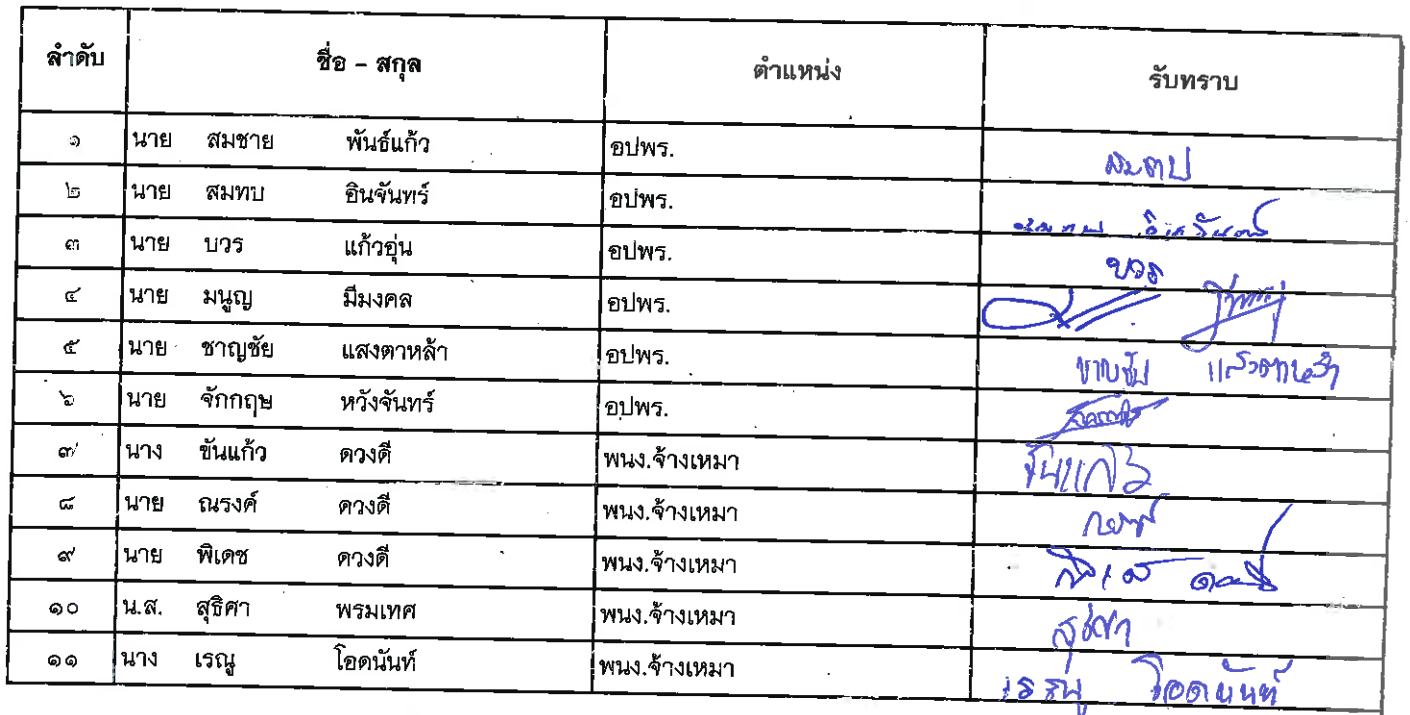 ลำดับ ชื่อ - สกุล ตำแหน่ง รับทราบ
๑ นาย สมชาย พันธ์แก้ว อปพร.
๒ นาย สมทบ อินจันทร์ อปพร.
๓ นาย บวร แก้วอุ่น อปพร. บวร
๔ นาย มนูญ มีมงคล อปพร.
๕ นาย ชาญชัย แสงตาหล้า อปพร.
๖ นาย จักกฤษ หวังจันทร์ อปพร.
๗ นาง ขันแก้ว ดวงดี พนง.จ้างเหมา ขันแก้ว
๘ นาย ณรงค์ ดวงดี พนง.จ้างเหมา
๙ นาย พิเดช ดวงดี พนง.จ้างเหมา
๑๐ น.ส. สุธิศา พรมเทศ พนง.จ้างเหมา สุธิศา
๑๑ นาง เรณู โอดนันท์ พนง.จ้างเหมา เรณู โอดนันท์